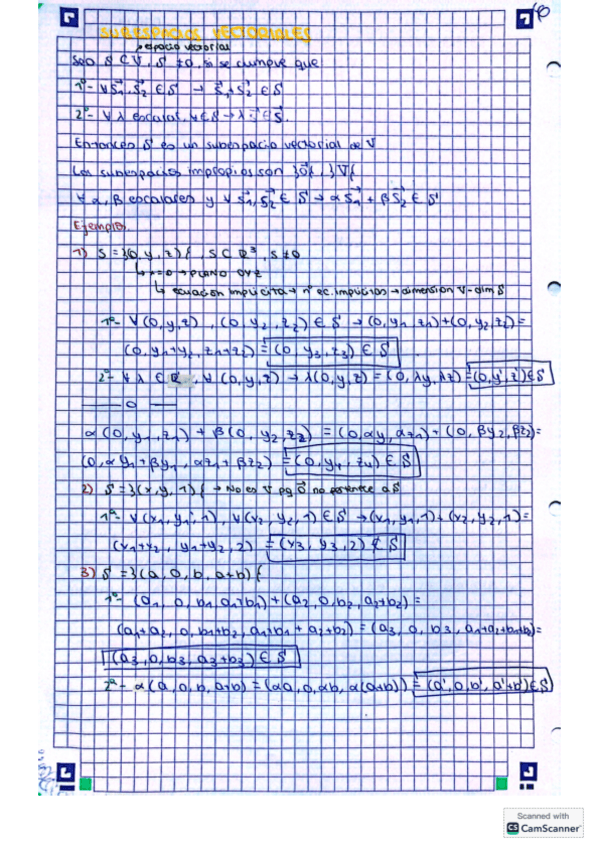 SUBESPACIOS VECTORIALES
espacio vectorial
Sea S ⊂ V, S ≠ ∅, si se cumple que
1º- ∀ s⃗1, s⃗2 ∈ S → s⃗1 + s⃗2 ∈ S
2º- ∀ λ escalar, ∈ S → λ ∈ S.
Entonces S es un subespacio vectorial de V
Los subespacios impropios son }0⃗{ , }V{
∀ α, β escalares y ∀ s⃗1, s⃗2 ∈ S → α s⃗1 + β s⃗2 ∈ S
Ejemplo.
1) S = }(0, y, z){ , S ⊂ R³, S ≠ ∅
↳ x=0 → PLANO OYZ
↳ ecuación implícita → nº ec. implícitas → dimension V - dim S
1º- ∀ (0, y, z), (0, y2, z2) ∈ S → (0, y1, z1) + (0, y2, z2) =
(0, y1+y2, z1+z2) = (0, y3, z3) ∈ S
2º- ∀ λ ∈ R, ∀ (0, y, z) → λ(0, y, z) = (0, λy, λz) = (0, y', z') ∈ S
—— o ——
α(0, y1, z1) + β(0, y2, z2) = (0, αy, αz1) + (0, βy2, βz2) =
(0, αy1 + βy1, αz1 + βz2) = (0, y4, z4) ∈ S
2) S = }(x, y, 1){ → No es V pq 0⃗ no pertenece a S
1º- ∀ (x1, y1, 1), ∀ (x2, y2, 1) ∈ S → (x1, y1, 1) + (x2, y2, 1) =
(x1+x2, y1+y2, 2) = (x3, y3, 2) ∉ S
3) S = }(a, 0, b, a+b){
1º- (a1, 0, b1, a1+b1) + (a2, 0, b2, a2+b2) =
(a1+a2, 0, b1+b2, a1+b1+a2+b2) = (a3, 0, b3, a1+a2+b1+b2) =
(a3, 0, b3, a3+b3) ∈ S
2º- α(a, 0, b, a+b) = (αa, 0, αb, α(a+b)) = (a', 0, b', a'+b') ∈ S
Scanned with
CS CamScanner